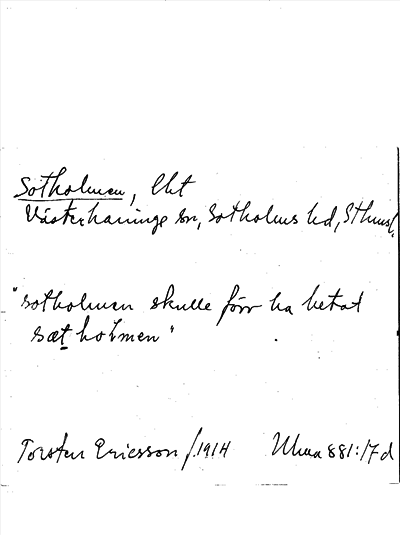 Sotholmen, lht
Västerhaninge sn, Sotholms hd, Sthmsl.
"sotholmen skulle förr ha hetat
sæt holmen"
Torsten Ericsson f. 1914 Uma 881:17 d